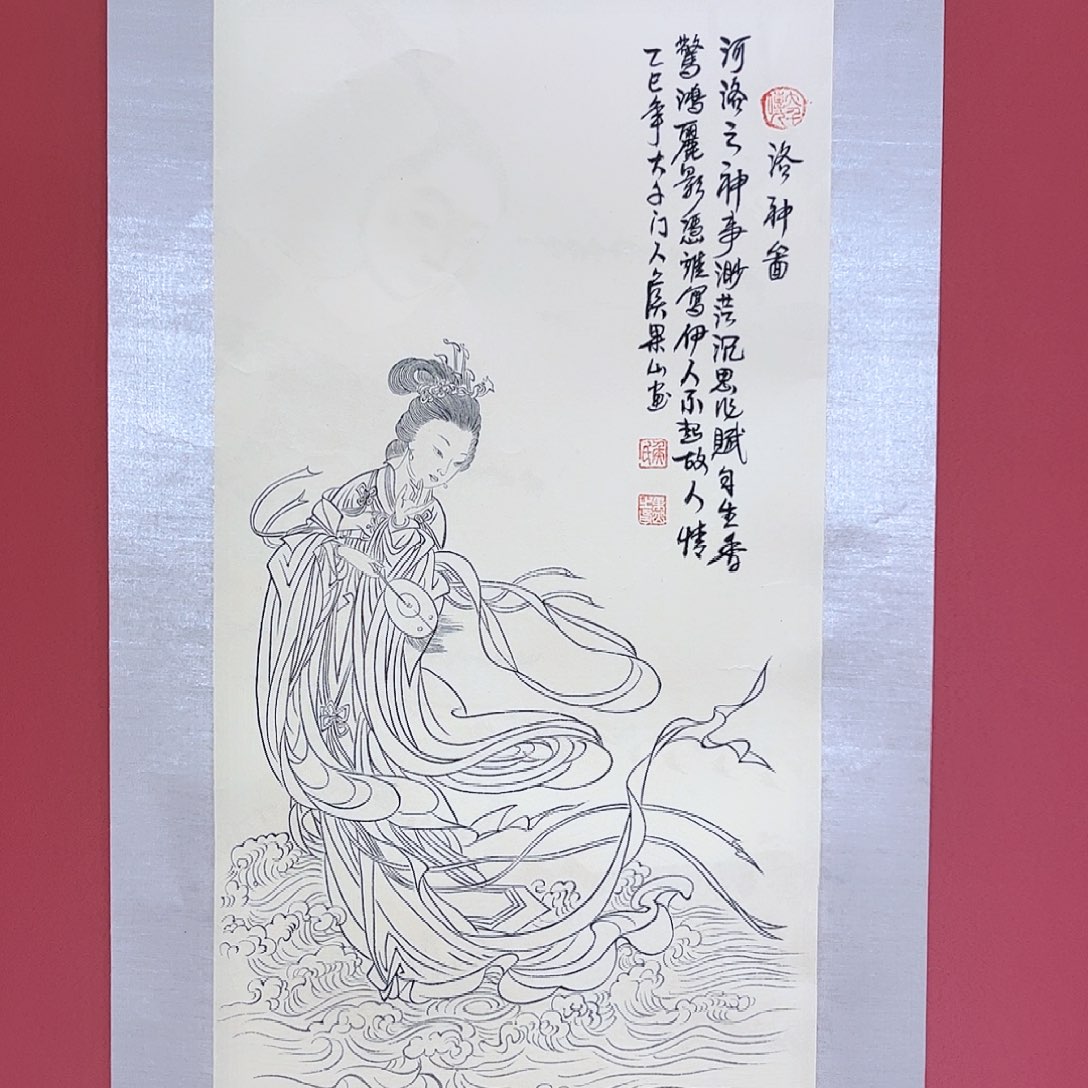 洛神啚
河洛之神事渺茫沉思作賦自生香
驚鴻麗影憑誰寫伊人不起故人情
乙巳年大千门人侯果山画